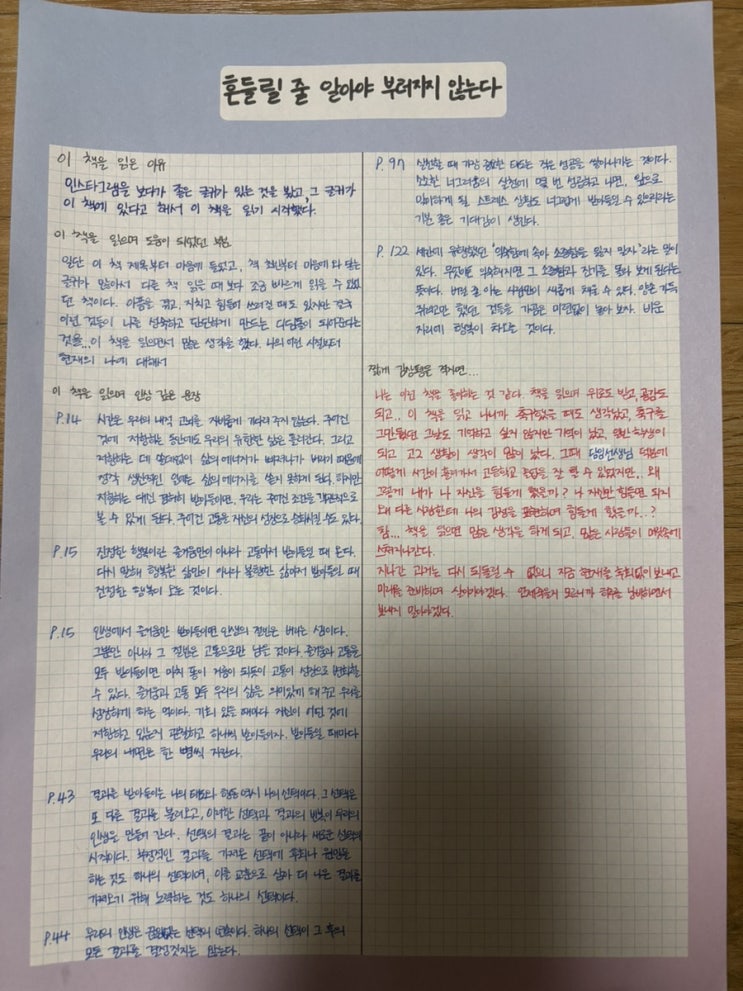 흔들릴 줄 알아야 부러지지 않는다
이 책을 읽은 이유
인스타그램을 보다가 좋은 글귀가 있는 것을 봤고, 그 글귀가
이 책에 있다고 해서 이 책을 읽기 시작했다.
이 책을 읽으며 도움이 되었던 부분
일단 이 책 제목부터 마음에 들었고, 책 초반부터 마음에 와 닿는
글귀가 많아서 다른 책 읽을 때 보다 조금 빠르게 읽을 수 있었
던 책이다. 아픔을 겪고, 지치고 힘들어 쓰러질 때도 있지만 결국
이런 것들이 나를 성숙하고 단단하게 만드는 디딤돌이 되어준다는
것을.. 이 책을 읽으면서 많은 생각을 했다. 나의 어린 시절부터
현재의 나에 대해서
이 책을 읽으며 인상 깊은 문장
P.14 시간은 우리의 내적 고뇌를 자비롭게 기다려 주지 않는다. 주어진
것에 저항하는 동안에도 우리의 유한한 삶은 흘러간다. 그리고
저항하는 데 쓸데없이 삶의 에너지가 빠져나가 버리기 때문에
정작 생산적인 일에는 삶의 에너지를 쓰지 못하게 된다. 하지만
저항하는 대신 겸허히 받아들이면, 우리는 주어진 조건을 객관적으로
볼 수 있게 된다. 주어진 고통을 자신의 성장으로 승화시킬 수도 있다.
P.15 진정한 행복이란 즐거움만이 아니라 고통마저 받아들일 때 온다.
다시 말해 행복한 삶만이 아니라 불행한 삶마저 받아들일 때
진정한 행복이 오는 것이다.
P.15 인생에서 즐거움만 받아들이면 인생의 절반은 버리는 셈이다.
그뿐만 아니라 그 절반은 고통으로만 남을 것이다. 즐거움과 고통을
모두 받아들이면 마치 똥이 거름이 되듯이 고통이 성장으로 변화할
수 있다. 즐거움과 고통 모두 우리의 삶을 의미있게 해 주고 우리를
성장하게 하는 약이다. 기회 있을 때마다 자신이 어떤 것에
저항하고 있는지 관찰하고 하나씩 받아들이자. 받아들일 때마다
우리의 내면은 한 뼘씩 자란다.
P.43 결과를 받아들이는 나의 태도와 행동 역시 나의 선택이다. 그 선택은
또 다른 결과를 불러오고, 이러한 선택과 결과의 반복이 우리의
인생을 만들어 간다. 선택의 결과는 끝이 아니라 새로운 선택의
시작이다. 부정적인 결과를 가져온 선택에 후회나 원망을
하는 것도 하나의 선택이며, 이를 교훈으로 삼아 더 나은 결과를
가져오기 위해 노력하는 것도 하나의 선택이다.
P.44 우리의 인생은 끊임없는 선택의 연속이다. 하나의 선택이 그 후의
모든 결과를 결정짓지는 않는다.
P.97 실천할 때 가장 중요한 태도는 작은 성공을 쌓아나가는 것이다.
소소한 너그러움의 실천에 몇 번 성공하고 나면, 앞으로
맞이하게 될 스트레스 상황도 너그럽게 받아들일 수 있으리라는
기분 좋은 기대감이 생긴다.
P.122 세간에 유행했던 '익숙함에 속아 소중함을 잃지 말자'라는 말이
있다. 무엇이든 익숙해지면 그 소중함과 진가를 몰라 보게 된다는
뜻이다. 버릴 줄 아는 사람만이 새롭게 채울 수 있다. 양손 가득
쥐려고만 했던 것들을 가끔은 미련없이 놓아 보자. 비운
자리에 행복이 차오를 것이다.
짧게 감상평을 적자면...
나는 이런 책을 좋아하는 것 같다. 책을 읽으며 위로도 받고, 공감도
되고.. 이 책을 읽고 나니까 축구했을 때도 생각났고, 축구를
그만뒀던 그날도 기억하고 싶지 않지만 기억이 났고, 일반 학생이
되고 고3 생활이 생각이 많이 났다. 그때 담임선생님 덕분에
어떻게 시간이 흘러가서 고등학교 졸업을 잘 할 수 있었지만,. 왜
그렇게 내가 나 자신을 힘들게 했을까? 나 자신만 힘들면 되지
왜 다른 사람한테 나의 감정을 표현하며 힘들게 했을까..?
참... 책을 읽으면 많은 생각을 하게 되고, 많은 사람들이 머릿속에
스쳐지나간다.
지나간 과거는 다시 되돌릴 수 없으니 지금 현재를 후회없이 보내고
미래를 준비하며 살아가야겠다. 언제죽을지 모르니까 하루를 낭비하면서
보내지 말아야겠다.